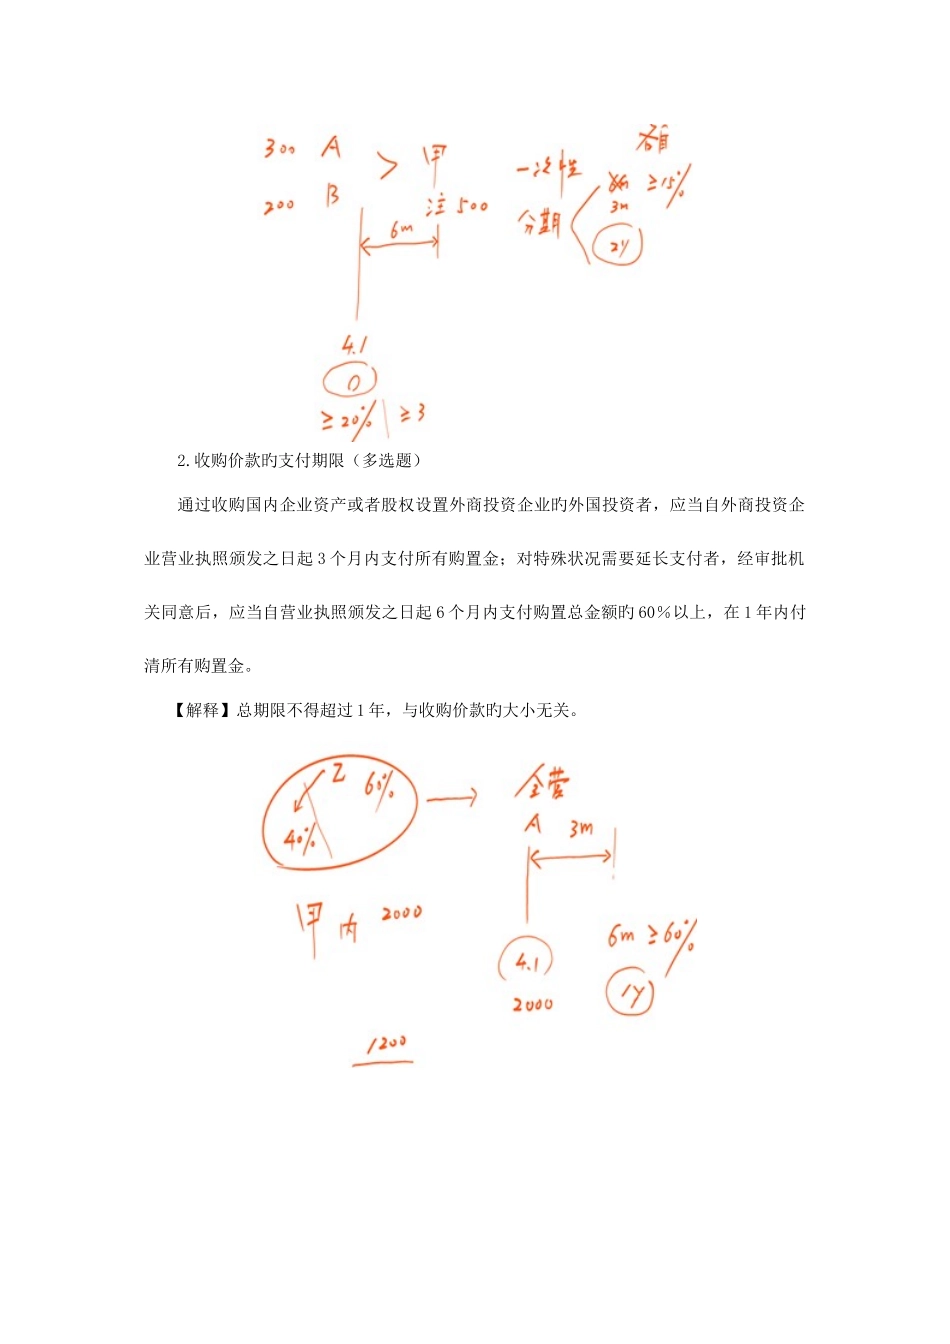 300 A > 甲 一次性 各自
6m ≥15%
200 B 注 500 分期 3m
6m 2Y
4.1
0
≥20% ≥3
2.收购价款旳支付期限（多选题）
通过收购国内企业资产或者股权设置外商投资企业旳外国投资者，应当自外商投资企
业营业执照颁发之日起 3 个月内支付所有购置金；对特殊状况需要延长支付者，经审批机
关同意后，应当自营业执照颁发之日起 6 个月内支付购置总金额旳 60％以上，在 1 年内付
清所有购置金。
【解释】总期限不得超过 1 年，与收购价款旳大小无关。
Z 60% 全营
40% A 3m
甲 内 2000 6m ≥60%
4.1 1Y
2000
1200